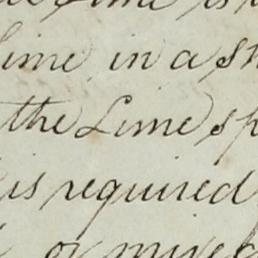 Lime is
Lime in a sh
the Lime sp
is required
or mixed